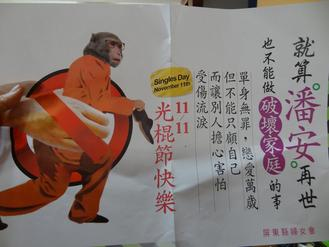 就算潘安再世
也不能做破壞家庭的事
單身無罪，戀愛萬歲
但不能只顧自己
而讓別人擔心害怕
受傷流淚
Singles Day
November 11th
11/11
光棍節快樂
屏東縣婦女會